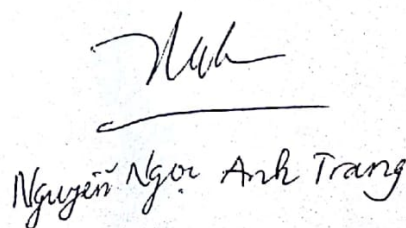 Nguyễn Ngọc Anh Trang